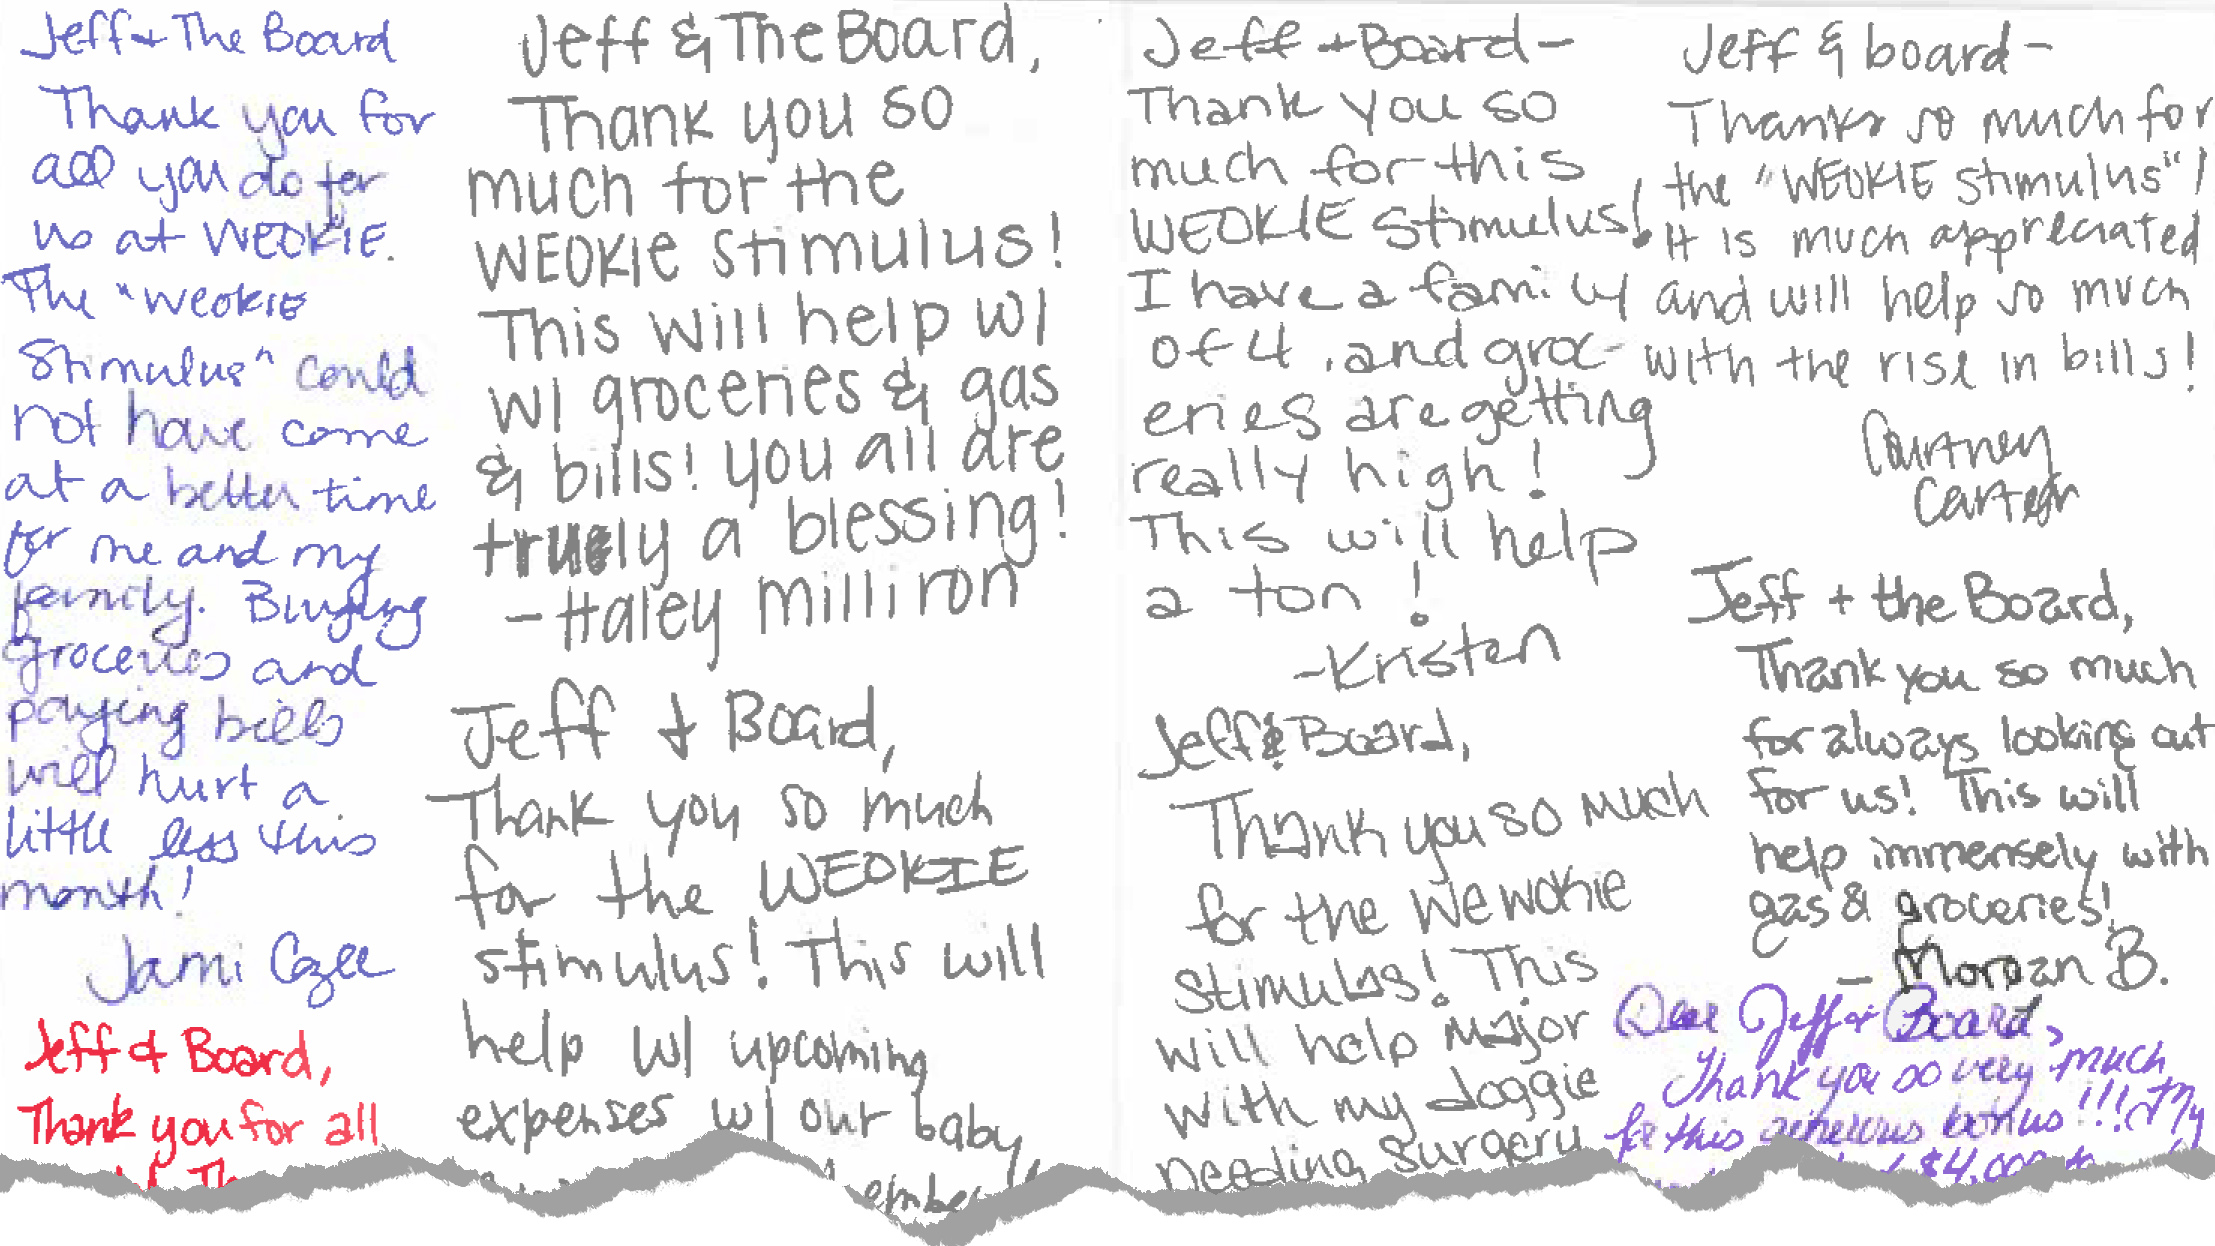 Jeff + The Board
Thank you for
all you do for
us at WEOKIE.
The "WEOKIE
Stimulus" could
not have come
at a better time
for me and my
family. Buying
groceries and
paying bills
will hurt a
little less this
month!
Jami Cozee
Jeff & Board,
Thank you for all
Jeff & The Board,
Thank you so
much for the
WEOKIE stimulus!
This will help w/
w/ groceries & gas
& bills! You all are
truely a blessing!
- Haley Milliron
Jeff & Board,
Thank you so much
for the WEOKIE
stimulus! This will
help w/ upcoming
expenses w/ our baby,
Jeff + Board -
Thank you so
much for this
WEOKIE Stimulus!
I have a family
of 4, and groc-
eries are getting
really high!
This will help
a ton!
- Kristen
Jeff & Board,
Thank you so much
for the Wewokie
Stimulus! This
will help major
with my doggie
needing surgery
Jeff & board -
Thanks so much for
the "WEOKIE stimulus"!
It is much appreciated
and will help so much
with the rise in bills!
Courtney
Carter
Jeff + the Board,
Thank you so much
for always looking out
for us! This will
help immensely with
gas & groceries!
- Morgan B.
Dear Jeff & Board,
Thank you so very much
for this generous bonus!!! My
$4,000 to